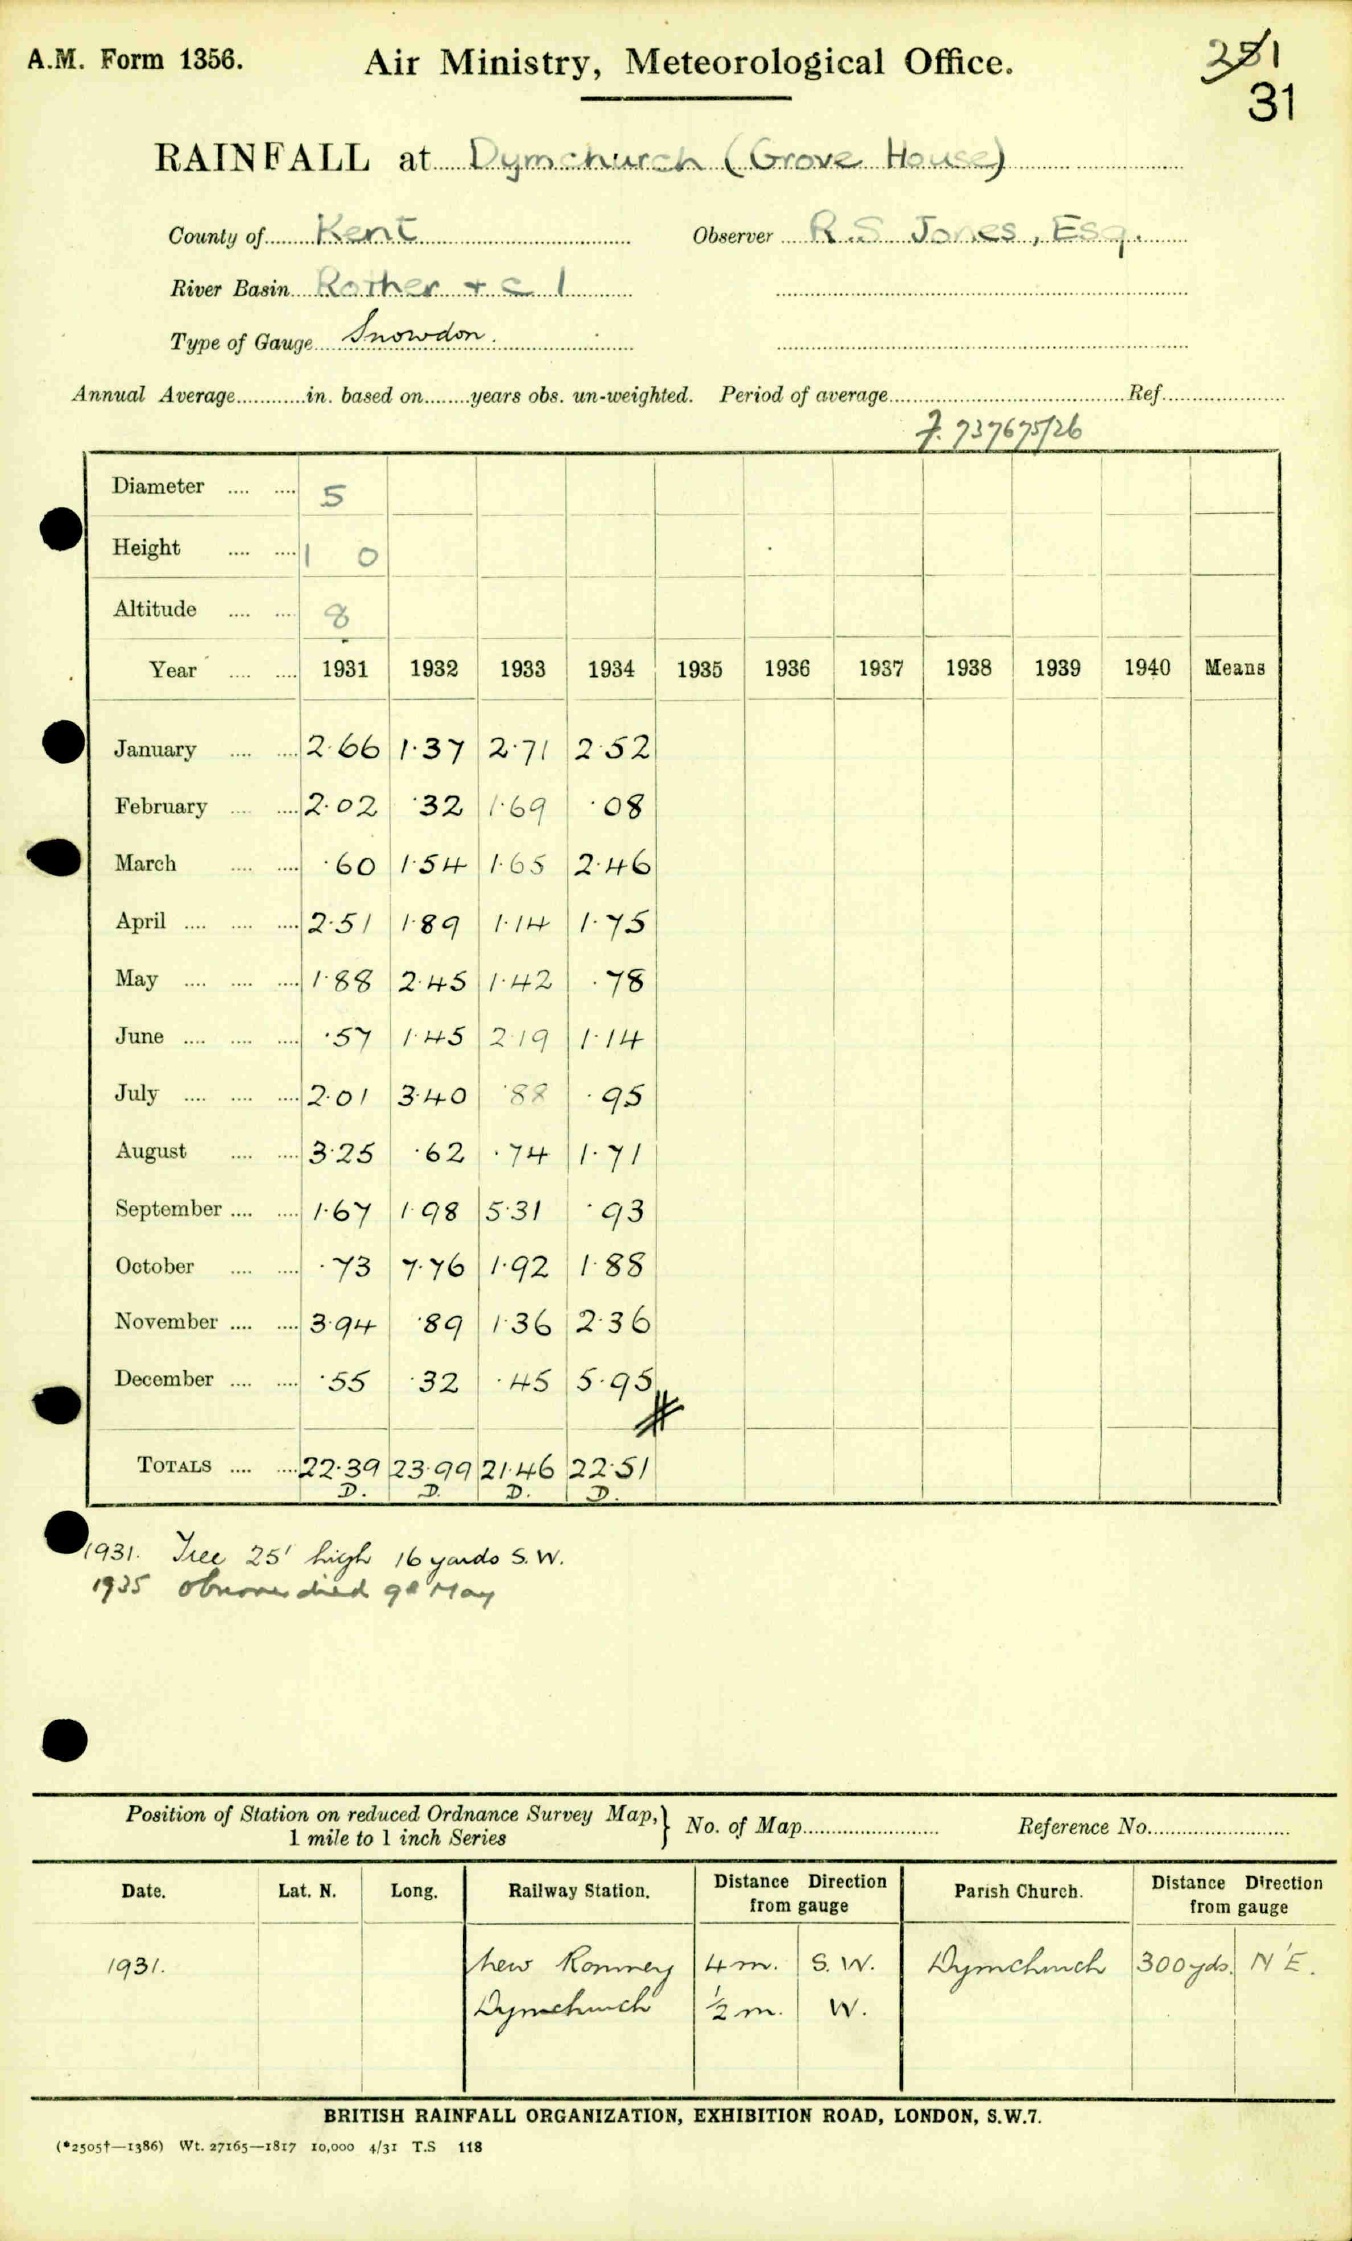 A.M. Form 1356. Air Ministry, Meteorological Office. 251
31
RAINFALL at Dymchurch (Grove House)
County of Kent Observer R.S Jones, Esq.
River Basin Rother + c 1
Type of Gauge Snowdon.
Annual Average in. based on years obs. un-weighted. Period of average Ref.
7. 737675/26
Diameter 5
Height 1 0
Altitude 8
Year 1931 1932 1933 1934 1935 1936 1937 1938 1939 1940 Means
January 2.66 1.37 2.71 2.52
February 2.02 .32 1.69 .08
March .60 1.54 1.65 2.46
April 2.51 1.89 1.14 1.75
May 1.88 2.45 1.42 .78
June .57 1.45 2.19 1.14
July 2.01 3.40 .88 .95
August 3.25 .62 .74 1.71
September 1.67 1.98 5.31 .93
October .73 7.76 1.92 1.88
November 3.94 .89 1.36 2.36
December .55 .32 .45 5.95
TOTALS 22.39 23.99 21.46 22.51
D. D. D. D.
1931. Tree 25' high 16 yards S.W.
1935 Observer died 9th May
Position of Station on reduced Ordnance Survey Map, } No. of Map Reference No.
1 mile to 1 inch Series
Date. Lat. N. Long. Railway Station. Distance Direction from gauge Parish Church. Distance Direction from gauge
1931. New Romney 4 m. S.W. Dymchurch 300 yds. N'E.
Dymchurch ½ m. W.
BRITISH RAINFALL ORGANIZATION, EXHIBITION ROAD, LONDON, S.W.7.
(*2505†—1386) Wt. 27165—1817 10,000 4/31 T.S 118